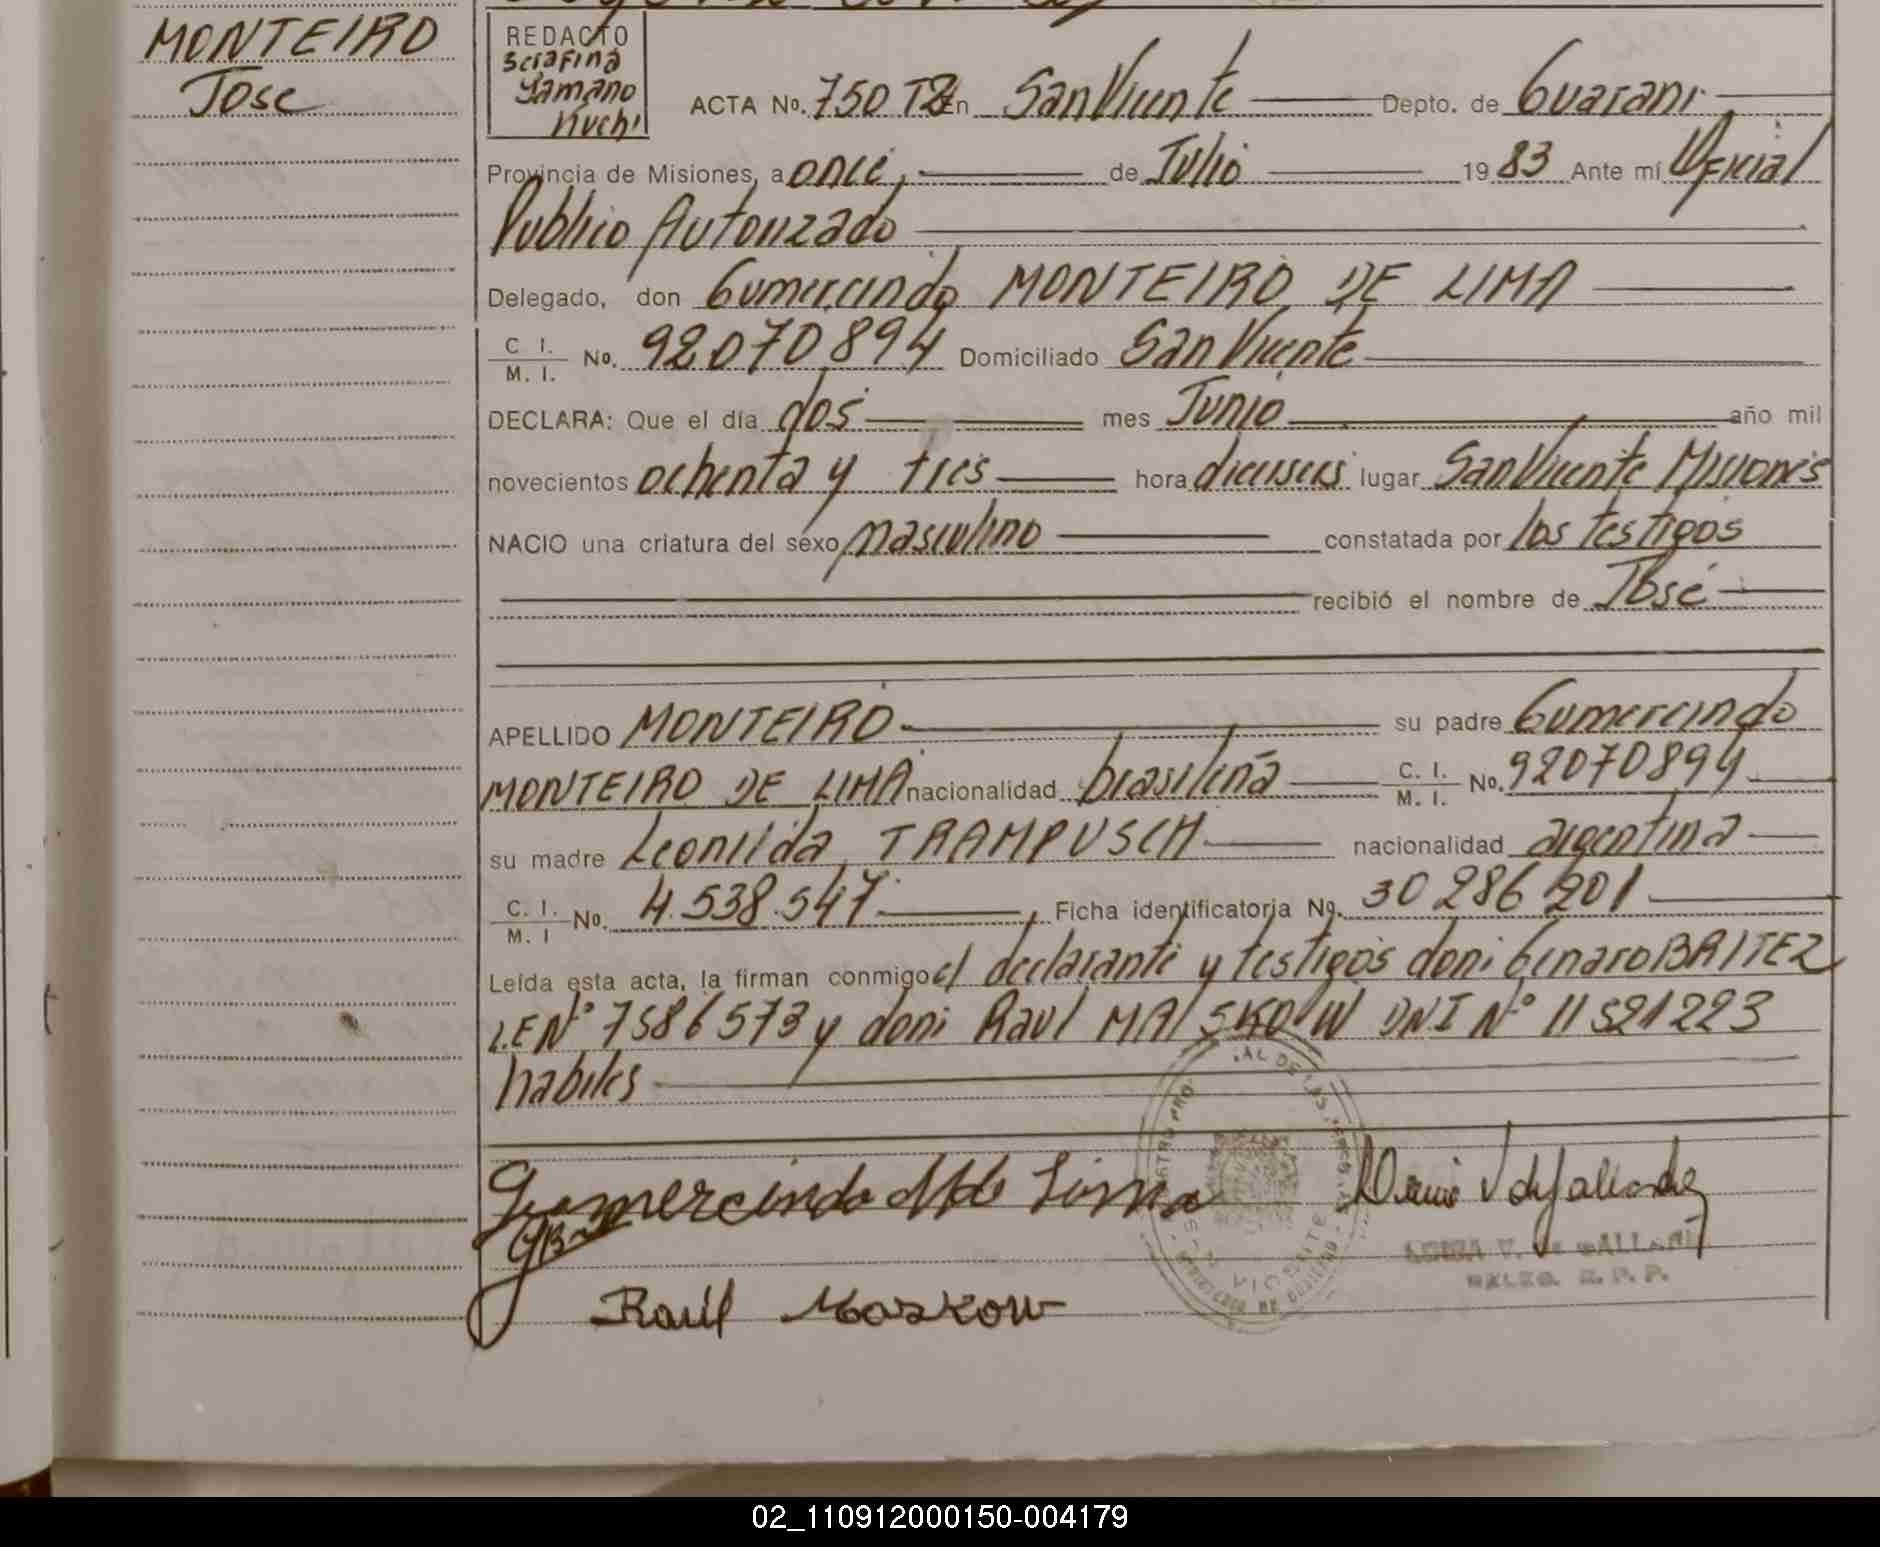 MONTEIRO
José
REDACTO
Serafina
Yamano
Kuchi
ACTA No. 750 T2 En San Vicente Depto. de Guarani
Provincia de Misiones, a once, de Julio 19 83 Ante mí Oficial
Publico Autorizado
Delegado, don Gumercindo MONTEIRO DE LIMA
C I. M. I. No. 92070894 Domiciliado San Vicente
DECLARA: Que el día dos mes Junio año mil
novecientos ochenta y tres hora dieciseis lugar San Vicente Misiones
NACIO una criatura del sexo masculino constatada por los testigos
recibió el nombre de José
APELLIDO MONTEIRO su padre Gumercindo
MONTEIRO DE LIMA nacionalidad brasileña C. I. M. I. No. 92070894
su madre Leonilda TRAMPUSCH nacionalidad argentina
C. I. M. I No. 4.538.547 Ficha identificatoria No. 30 286 201
Leída esta acta, la firman conmigo el declarante y testigos don: Genaro BRITEZ
L.E Nº 7586573 y don: Raul MAISKOW DNI Nº 11521223
habiles
Gumercindo M de Lima
Raúl Moskow
02_110912000150-004179